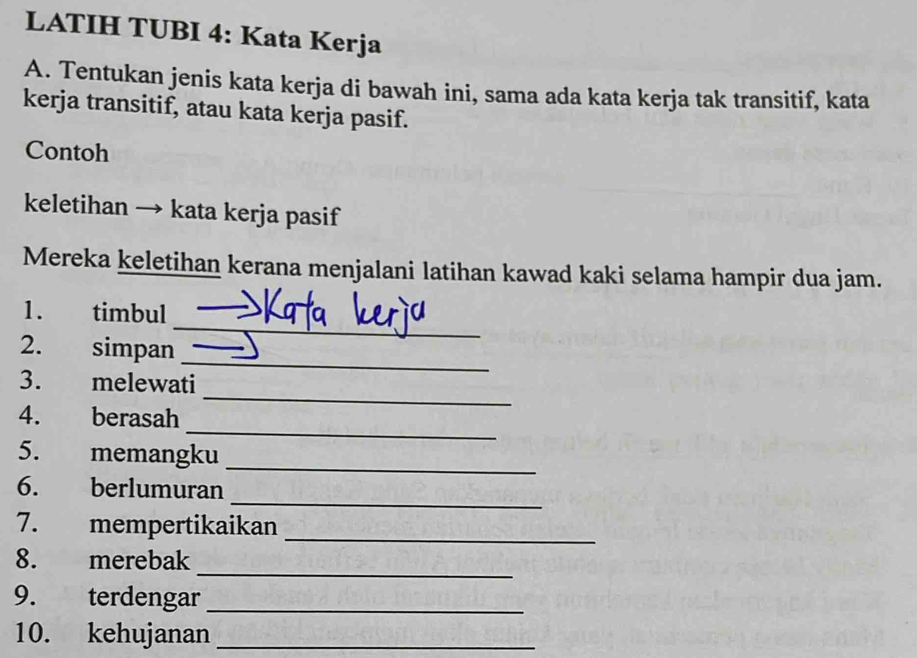 LATIH TUBI 4: Kata Kerja
A. Tentukan jenis kata kerja di bawah ini, sama ada kata kerja tak transitif, kata
kerja transitif, atau kata kerja pasif.
Contoh
keletihan → kata kerja pasif
Mereka keletihan kerana menjalani latihan kawad kaki selama hampir dua jam.
1. timbul → Kata kerja
2. simpan →
3. melewati
4. berasah
5. memangku
6. berlumuran
7. mempertikaikan
8. merebak
9. terdengar
10. kehujanan